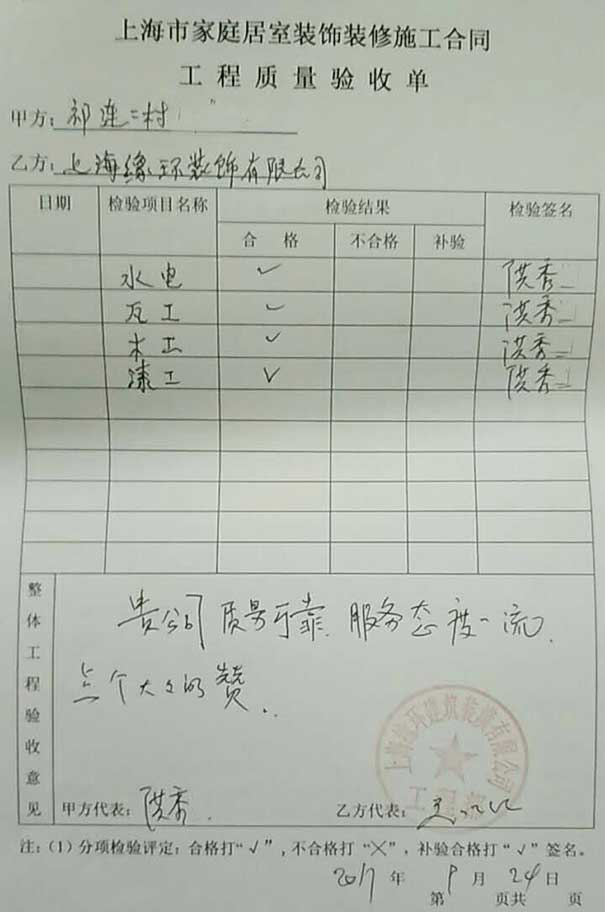 上海市家庭居室装饰装修施工合同
工程质量验收单
甲方：祁连二村
乙方：上海缘环装饰有限公司
日期 检验项目名称 检验结果 检验签名
合格 不合格 补验
水电 ✓ 洪秀
瓦工 ✓ 洪秀
木工 ✓ 洪秀
漆工 ✓ 洪秀
整体工程验收意见
贵公司质量可靠.服务态度一流.
点个大大的赞..
甲方代表：洪秀.
乙方代表：
注：(1)分项检验评定：合格打“√”,不合格打“╳”，补验合格打“√”签名。
2017年9月24日
第 页共 页